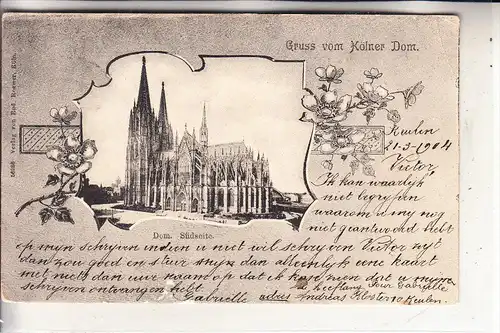 Gruss vom Kölner Dom.
Verlag von Cöln.
Keulen
21-3-1904
Victor
Ik kan waarlijk
niet begrijpen
waarom u my nog
niet geantwoord hebt
op myn schryven indien u niet wil schryven Victor zyt
dan zoo goed en stuur myn dan alleenlyk eene kaart
met niets dan uur naam op dat ik kose zien dat u myne
schryven ontvangen hebt Gabrielle
adres Andreas Kloster Keulen
Dom. Südseite.